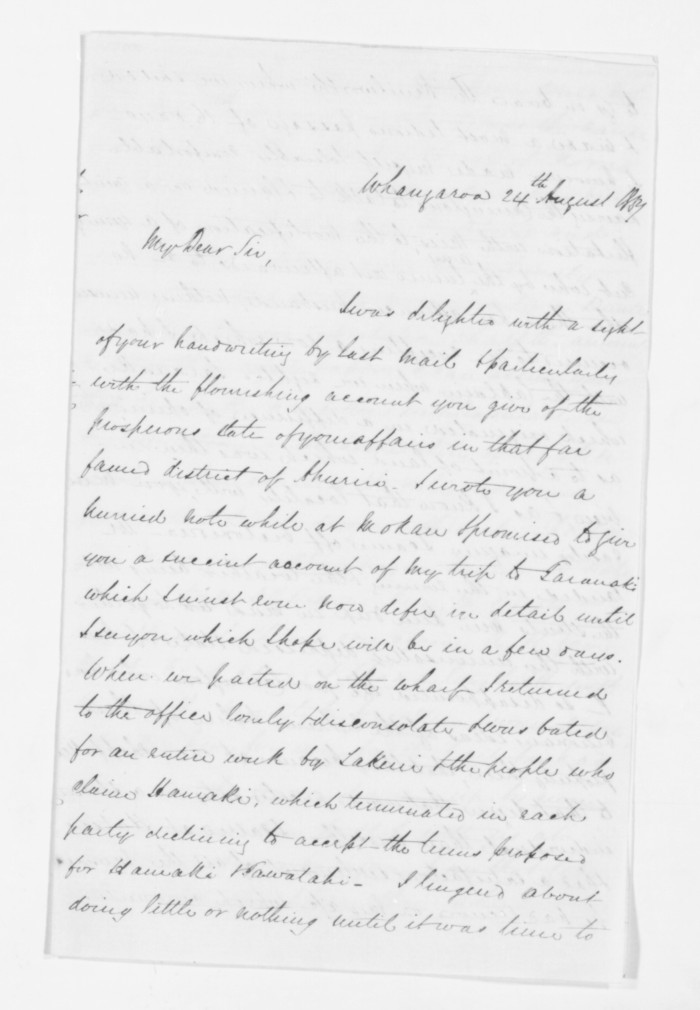 Whangaroa 24th August 1857
My Dear Sir,
I was delighted with a sight
of your handwriting by last Mail & particularly
with the flourishing account you give of the
prosperous state of your affairs in that far
famed district of Ahuriri. I wrote you a
hurried note while at Mokau & promised to give
you a succint account of my trip to Taranaki
which I must even now defer in detail until
I see you which I hope will be in a few days.
When we parted on the wharf I returned
to the office lonely & disconsolate & was bated
for an entire week by & the people who
claim Hamaki, which terminated in each
party declining to accept the terms proposed
for Hamaki & Awataki - I lingered about
doing little or nothing until it was time to